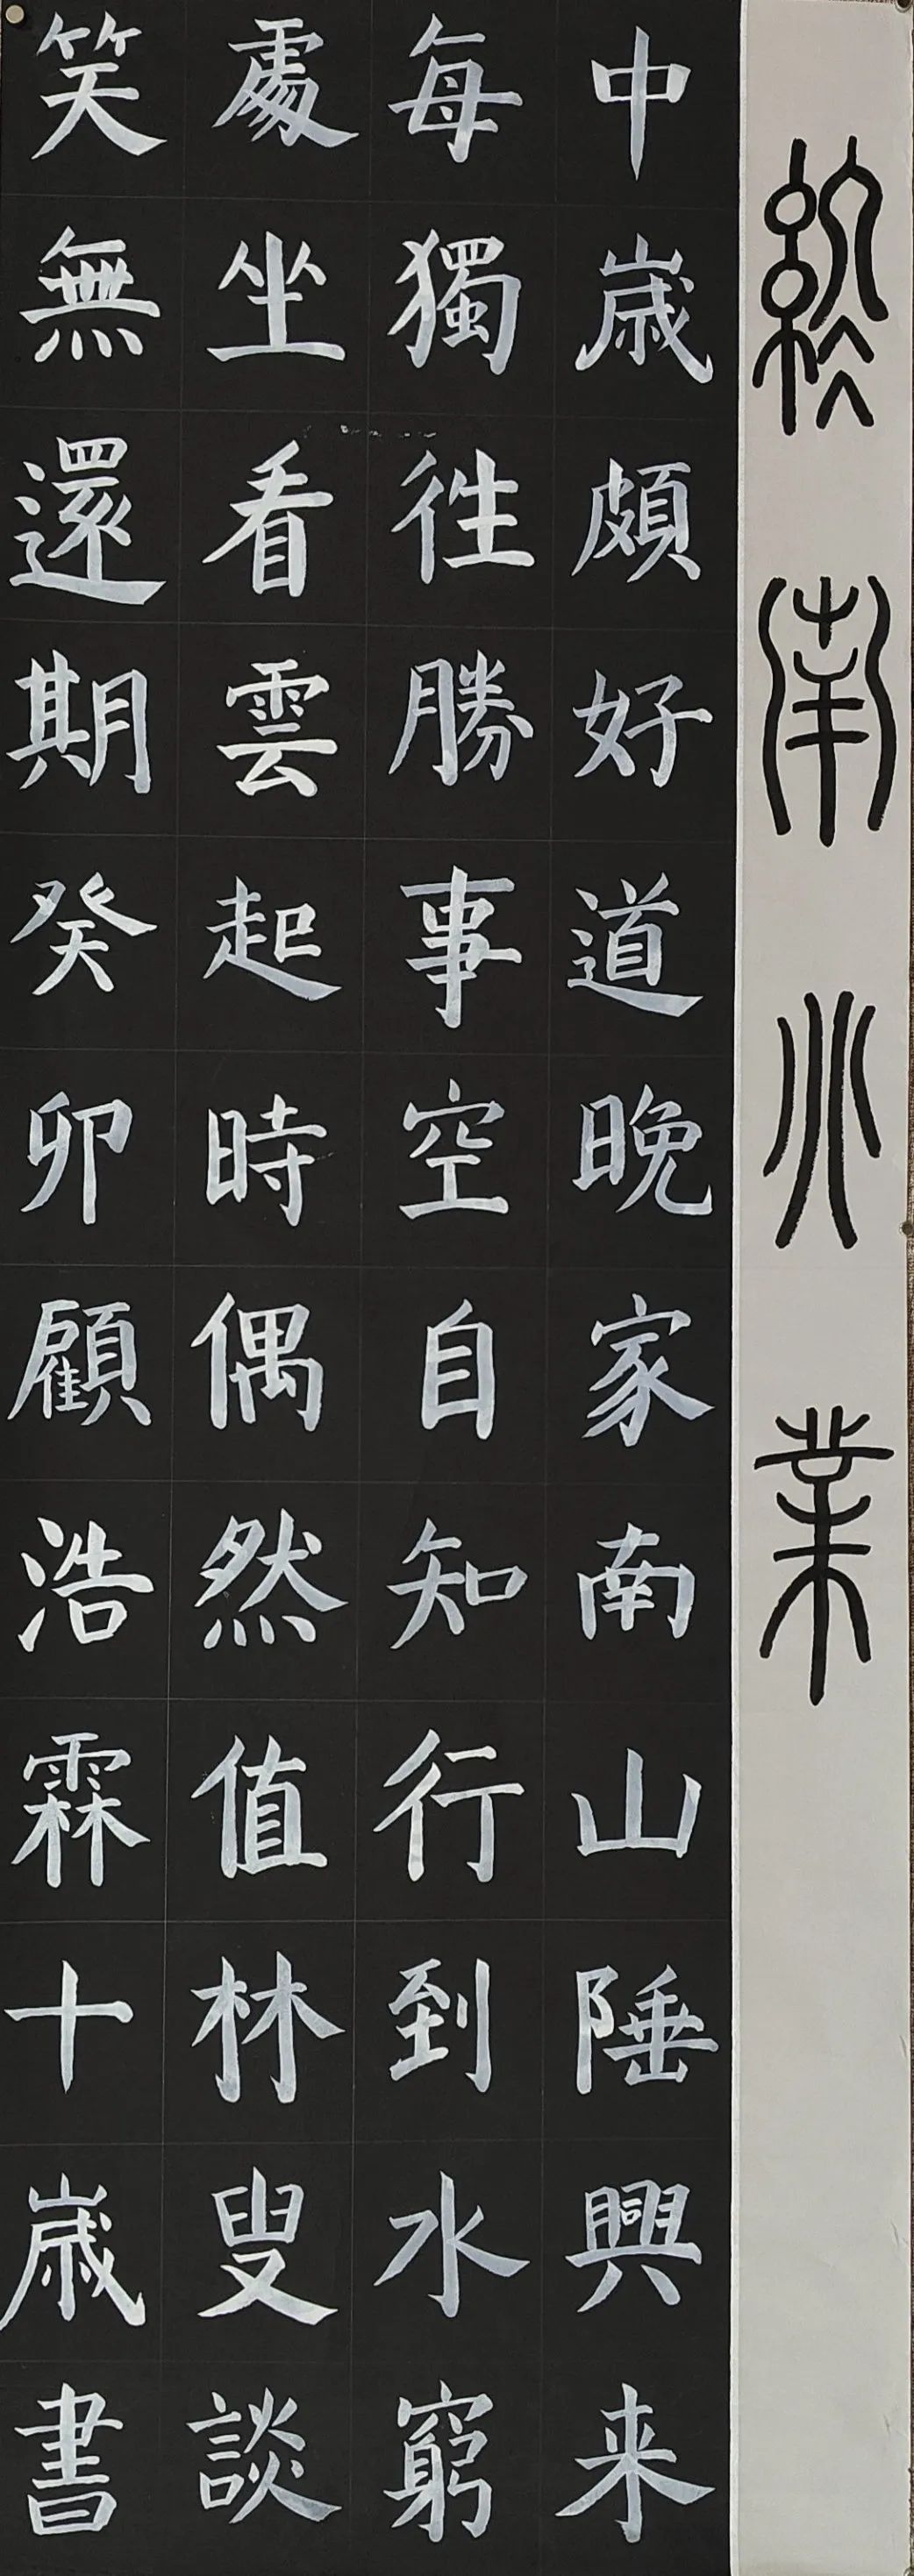 終南別業
中歲頗好道晚家南山陲興来
每獨徃勝事空自知行到水窮
處坐看雲起時偶然值林叟談
笑無還期癸卯顧浩霖十歲書